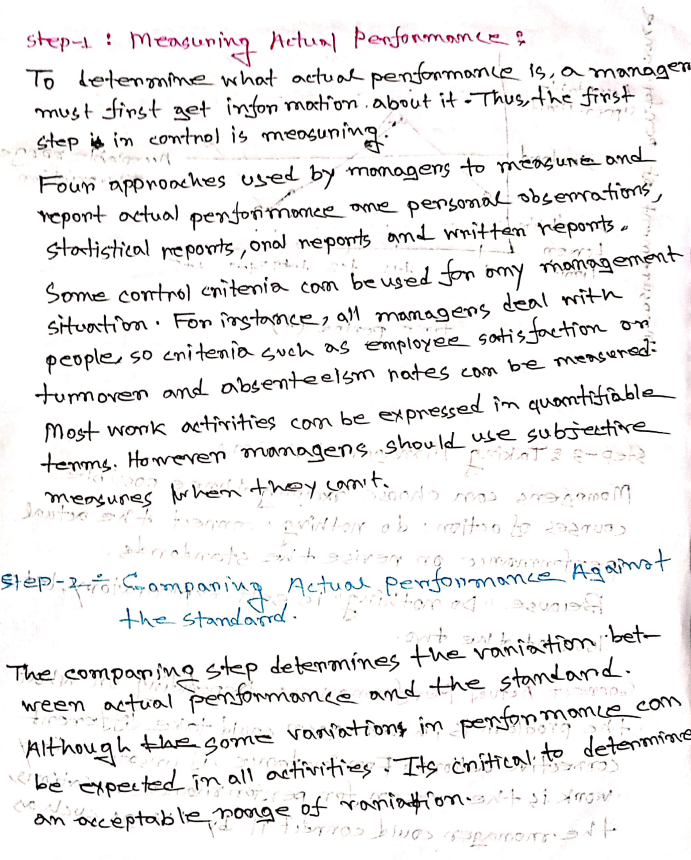 Step-1 : Measuring Actual Performance :
To determine what actual performance is, a manager
must first get information about it. Thus, the first
step in control is measuring.
Four approaches used by managers to measure and
report actual performance are personal observations,
statistical reports, oral reports and written reports.
Some control criteria can be used for any management
situation. For instance, all managers deal with
people, so criteria such as employee satisfaction or
turnover and absenteeism rates can be measured.
Most work activities can be expressed in quantifiable
terms. However managers should use subjective
measures when they can't.
Step-2 : Comparing Actual Performance Against
the standard.
The comparing step determines the variation bet-
ween actual performance and the standard.
Although the some variations in performance can
be expected in all activities. Its critical to determine
an acceptable range of variation.